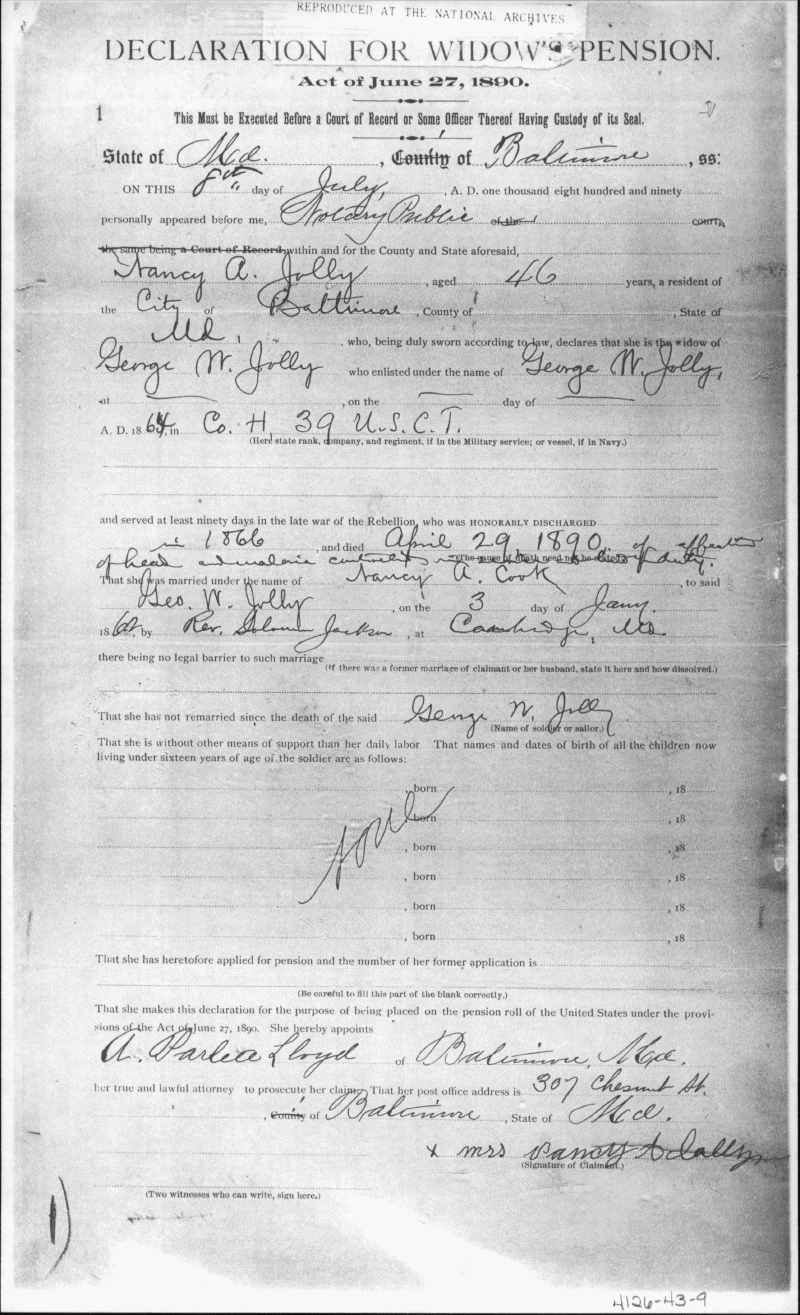 REPRODUCED AT THE NATIONAL ARCHIVES
DECLARATION FOR WIDOW'S PENSION.
Act of June 27, 1890.
1
This Must be Executed Before a Court of Record or Some Officer Thereof Having Custody of its Seal.
State of Md. , County of Baltimore , ss:
ON THIS 8th day of July, , A. D. one thousand eight hundred and ninety
personally appeared before me, Notary Public of the court,
the same being a Court of Record within and for the County and State aforesaid,
Nancy A. Jolly , aged 46 years, a resident of
the City of Baltimore , County of , State of
Md, , who, being duly sworn according to law, declares that she is the widow of
George W. Jolly who enlisted under the name of George W. Jolly,
at , on the day of
A. D. 1864, in Co. H, 39 U.S.C.T.
(Here state rank, company, and regiment, if in the Military service; or vessel, if in Navy.)
and served at least ninety days in the late war of the Rebellion, who was HONORABLY DISCHARGED
in 1866 , and died April 29, 1890 of affection
of head and malaria (The cause of death need not be stated) of duty.
That she was married under the name of Nancy A. Cook , to said
Geo. W. Jolly , on the 3 day of Jany.
18 , by Rev. Solomon Jackson , at Cambridge, Md.
there being no legal barrier to such marriage
(If there was a former marriage of claimant or her husband, state it here and how dissolved.)
That she has not remarried since the death of the said George W. Jolly
(Name of soldier or sailor.)
That she is without other means of support than her daily labor That names and dates of birth of all the children now
living under sixteen years of age of the soldier are as follows:
, born , 18
none , born , 18
, born , 18
, born , 18
, born , 18
, born , 18
That she has heretofore applied for pension and the number of her former application is
(Be careful to fill this part of the blank correctly.)
That she makes this declaration for the purpose of being placed on the pension roll of the United States under the provi-
sions of the Act of June 27, 1890. She hereby appoints
A. Parlett Lloyd of Baltimore, Md.
her true and lawful attorney to prosecute her claim. That her post office address is 307 Chesnut St.
, County of Baltimore , State of Md.
x mrs Nancy A Jolly
(Signature of Claimant.)
(Two witnesses who can write, sign here.)
1)
4126-43-9